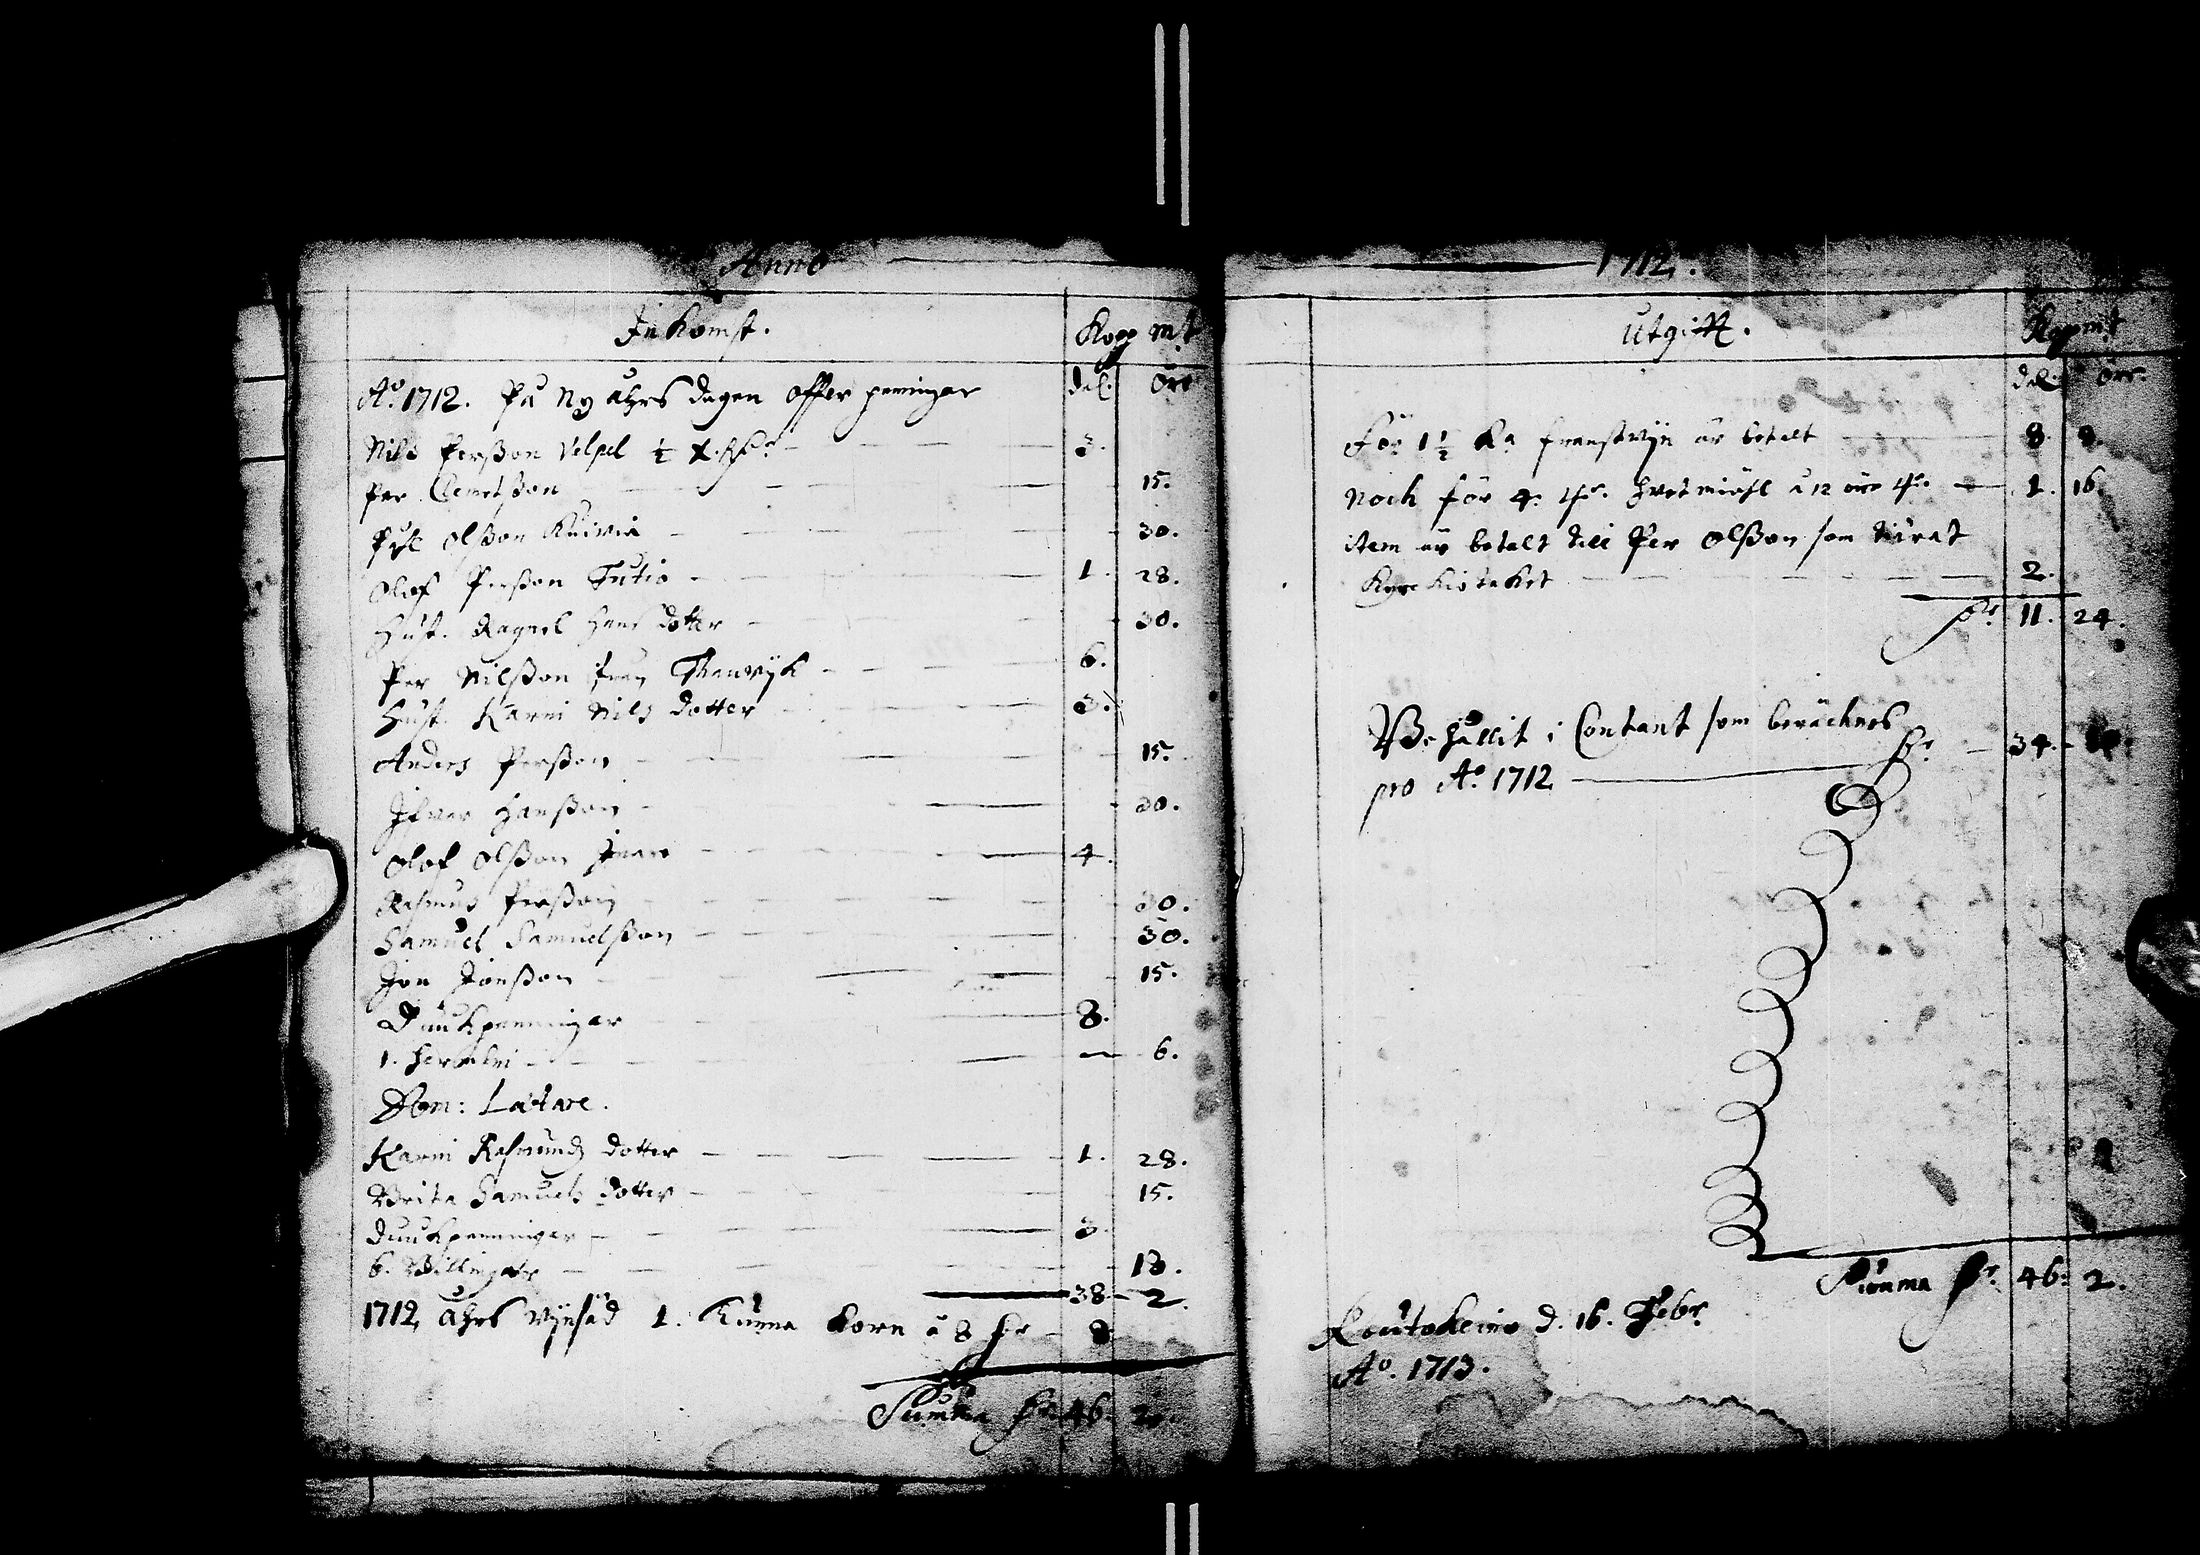 Anno
Inkomst. Kopp m:t
Aº. 1712. På Ny åhrs dagen Offer peningar dal. öre
Nils Perßon Velpel ½ 3.
Per Clemetßon 15.
Påhl Olßon Kuivia 30.
Olof Perßon Tutio 1. 28.
Hust. Ragnel Hans dotter 30.
Per Nilßon ifrån 6.
Hust. Karin Nils dotter 3.
Anders Perßon 15.
Ifver Hanßon 30.
Olof Olßon 4.
Rasmus Perßon 30.
Samuel Samuelßon 30.
Jon Jonßon 15.
Dunkpenningar 8.
1. 6.
Dom: Lætare.
Karin Rasmunds dotter 1. 28.
Brita Samuels dotter 15.
Dunkpenningar 3.
6. Billingar 18.
38. 2.
1712 åhrs vijnsäd 1. Kunna korn à 8 8
Summa 46. 2.
1712.
Utgifft. Kopp m:t
dal: Örr.
För 1 ½ Ka franskvijn är betalt 8. 8.
Noch för 4. hvetmiöhl à 12 öre 1. 16.
item är betalt till Per Olßon som
Kyrkiotaket 2.
11. 24.
Behållit i Contant som beräcknes
pro Aº 1712 34.
Summa 46. 2.
Koutokeino d. 16. Febr.
Aº. 1713.